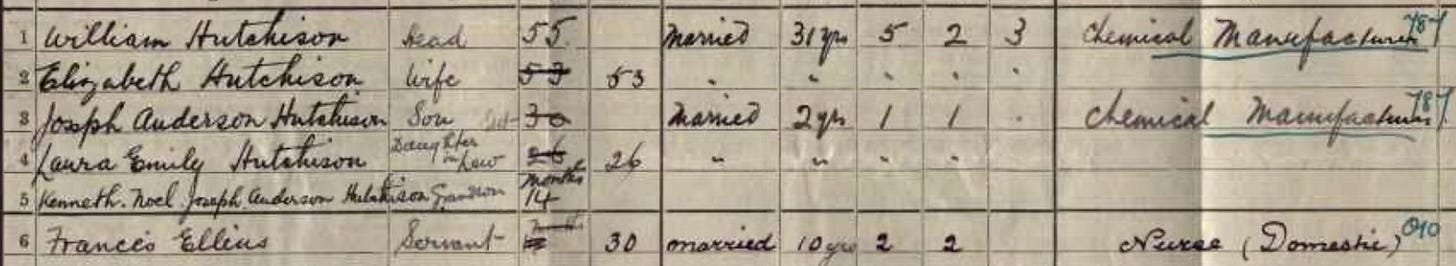 1 William Hutchison Head 55 Married 31 yrs 5 2 3 Chemical Manufacturer 787
2 Elizabeth Hutchison Wife 53 53 " " " " "
3 Joseph Anderson Hutchison Son 30 Married 2 yrs 1 1 . Chemical Manufacturer 787
4 Laura Emily Hutchison Daughter in Law 26 26 " " " "
5 Kenneth. Noel Joseph Anderson Hutchison Grandson months 14
6 Frances Ellins Servant 30 married 10 yrs 2 2 Nurse (Domestic) 010